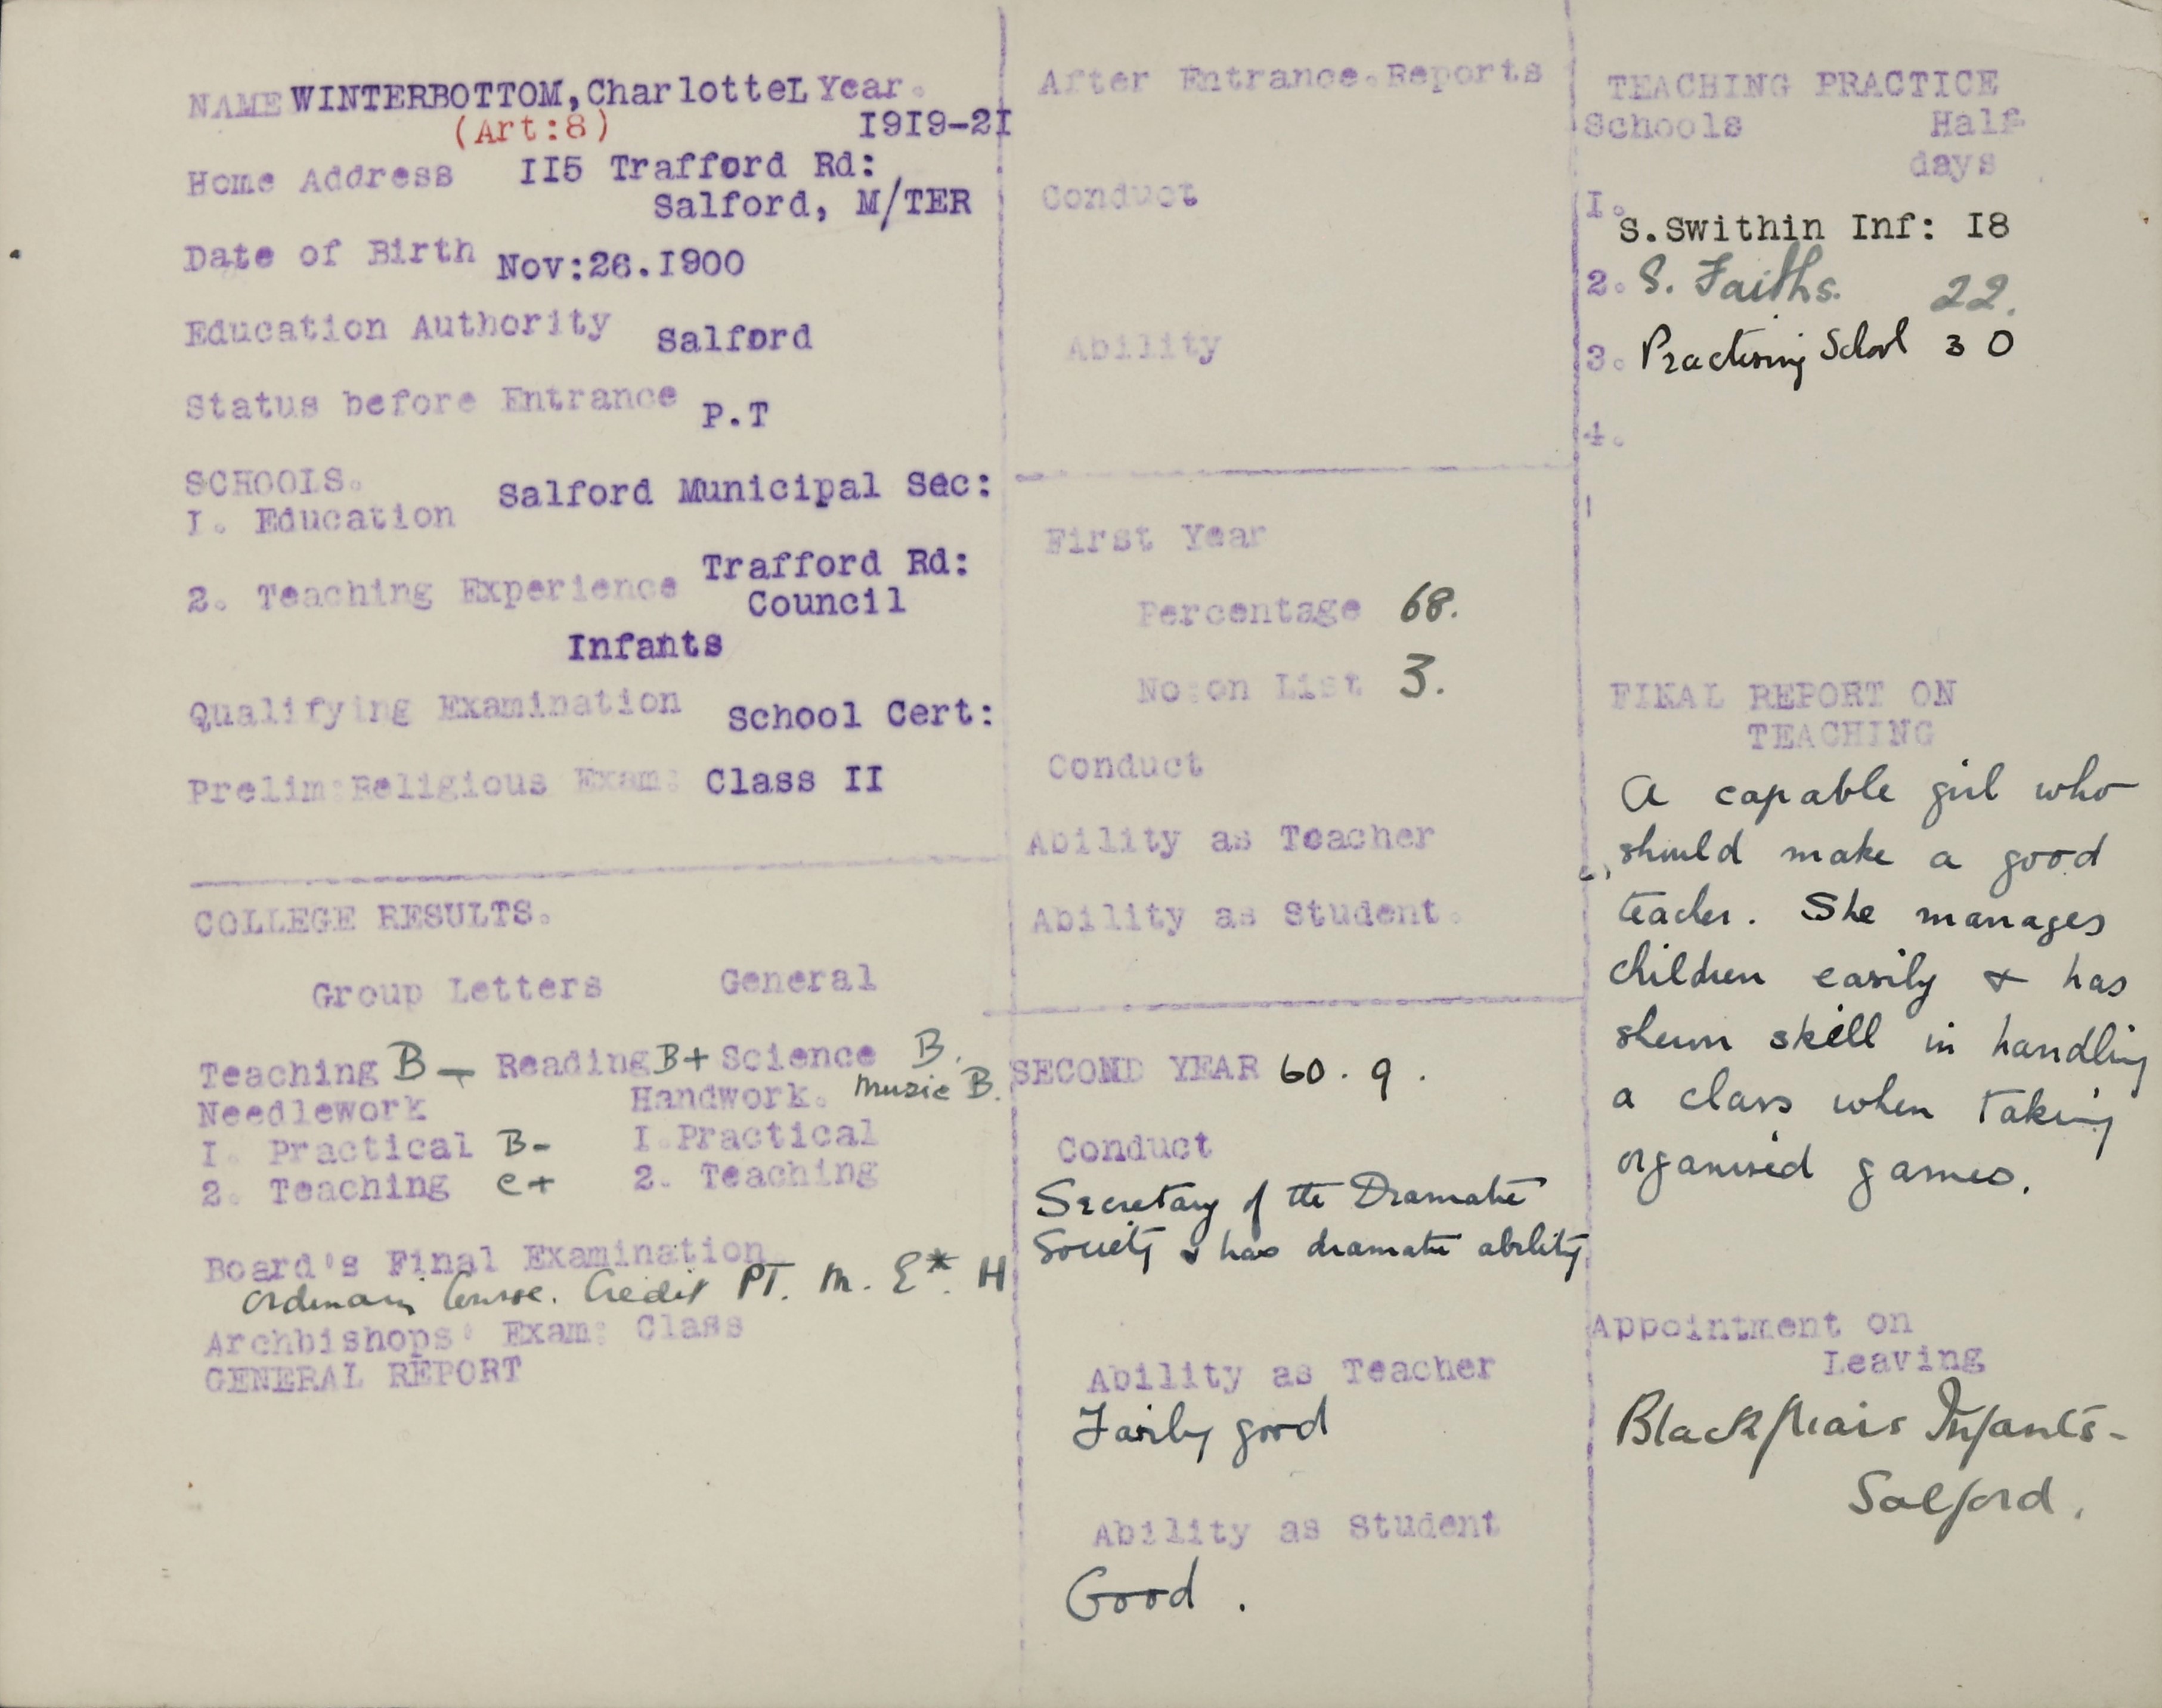 NAME WINTERBOTTOM, Charlotte L Year.
(Art:8) 1919-21
Home Address 115 Trafford Rd:
Salford, M/TER
Date of Birth Nov:26.1900
Education Authority Salford
Status before Entrance P.T
SCHOOLS.
1. Education Salford Municipal Sec:
2. Teaching Experience Trafford Rd:
Council
Infants
Qualifying Examination School Cert:
Prelim:Religious Exam: Class II
COLLEGE RESULTS.
Group Letters General
Teaching B- Reading B+ Science B.
Needlework Handwork. Music B.
1. Practical B- 1.Practical
2. Teaching C+ 2. Teaching
Board's Final Examination
Ordinary Course. Credit PT. M. E*. H
Archbishops' Exam: Class
GENERAL REPORT
After Entrance.Reports
Conduct
Ability
First Year
Percentage 68.
No:on List 3.
Conduct
Ability as Teacher
Ability as Student.
SECOND YEAR 60.9.
Conduct
Secretary of the Dramatic
Society & has dramatic ability
Ability as Teacher
Fairly good
Ability as Student
Good.
TEACHING PRACTICE
Schools Half
days
1. S.Swithin Inf: 18
2. S. Faiths. 22.
3. Practising School 30
4.
FINAL REPORT ON
TEACHING
A capable girl who
should make a good
teacher. She manages
children easily & has
shewn skill in handling
a class when taking
organised games.
Appointment on
Leaving
Blackfriars Infants-
Salford.